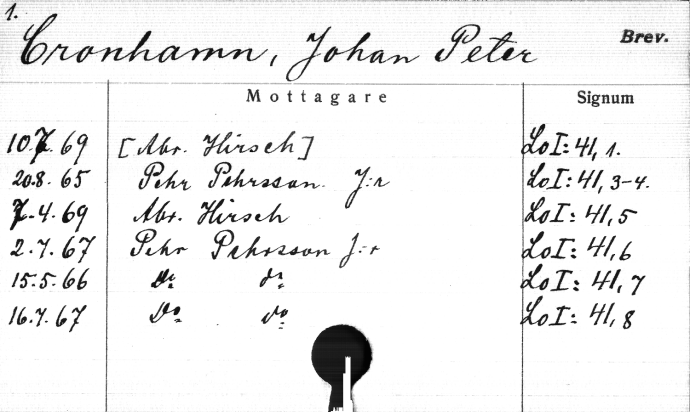 1.
Cronhamn, Johan Peter Brev.
Mottagare Signum
10.7. 69 [Abr. Hirsch] LoI: 41, 1.
20.8. 65 Pehr Pehrsson J:r LoI: 41, 3-4.
7.-4. 69 Abr. Hirsch LoI: 41, 5
2. 7. 67 Pehr Pehrsson J:r LoI: 41, 6
15.5. 66 Do do LoI: 41, 7
16.7. 67 Do do LoI: 41, 8